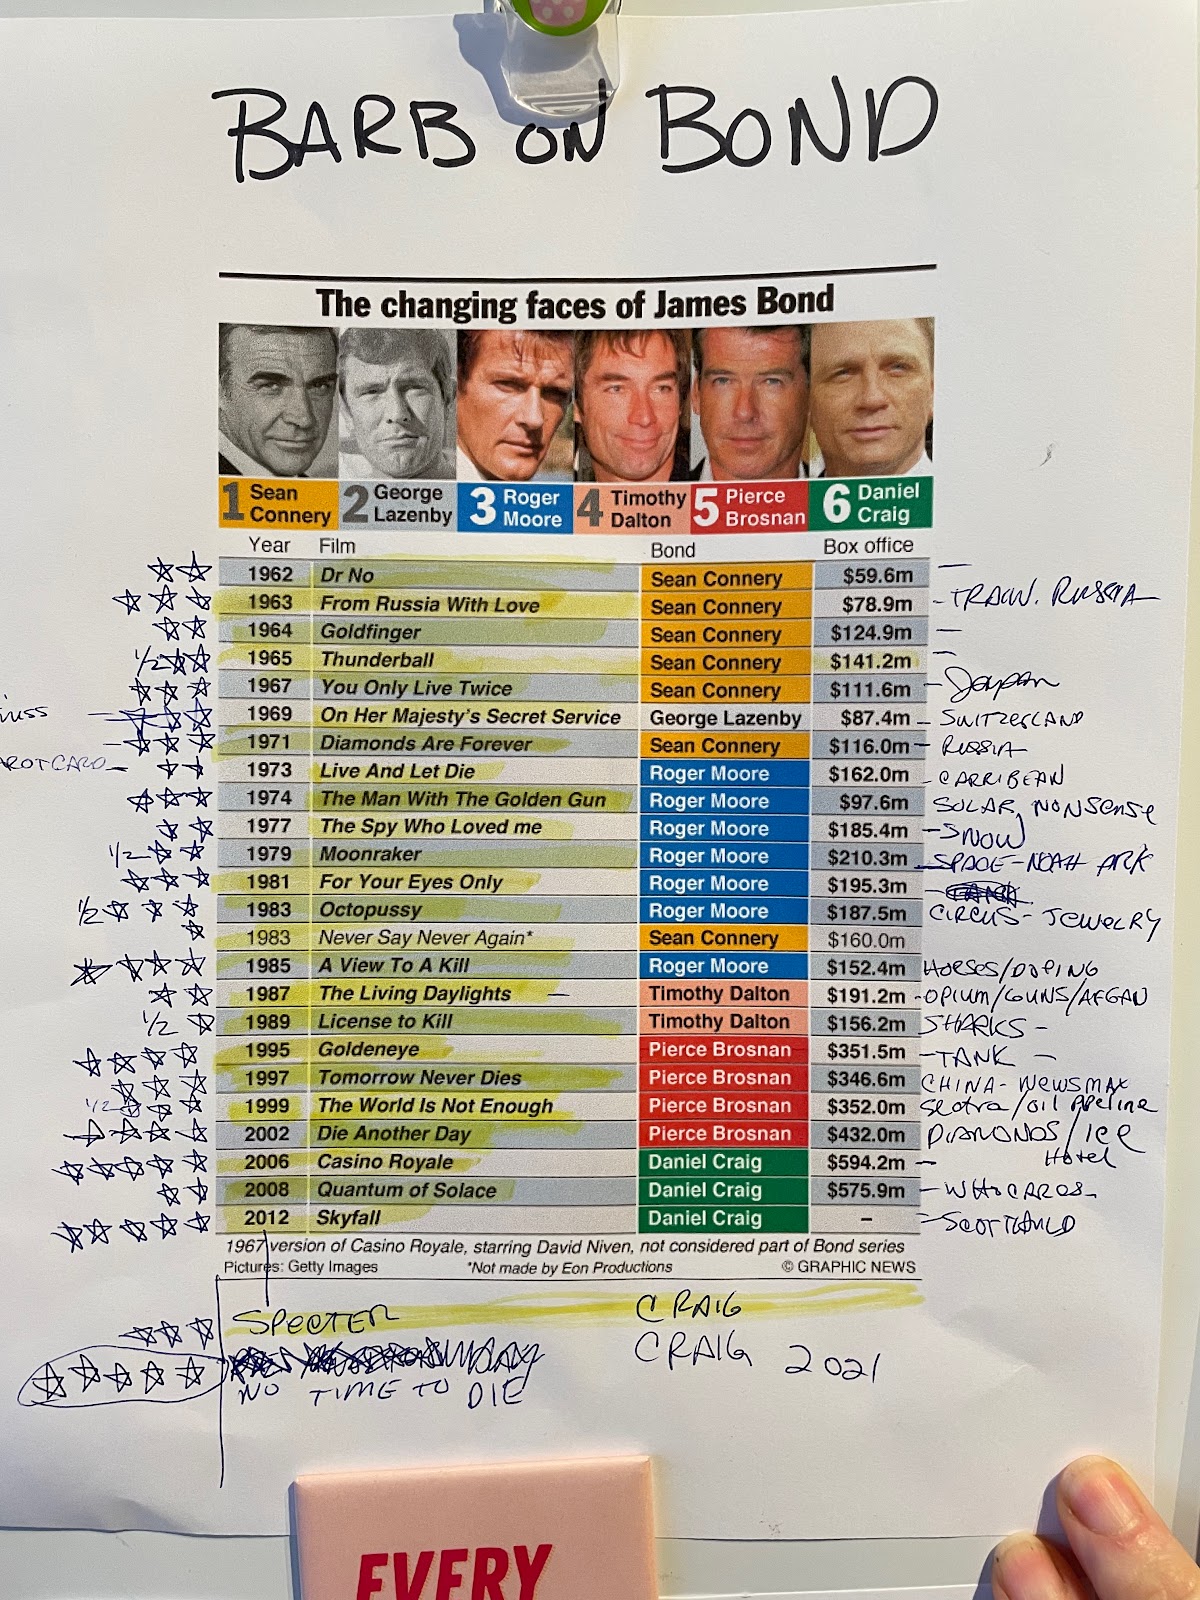 BARB ON BOND
The changing faces of James Bond
1 Sean Connery 2 George Lazenby 3 Roger Moore 4 Timothy Dalton 5 Pierce Brosnan 6 Daniel Craig
Year Film Bond Box office
1962 Dr No Sean Connery $59.6m —
1963 From Russia With Love Sean Connery $78.9m - RUSSIA
1964 Goldfinger Sean Connery $124.9m —
1/2 1965 Thunderball Sean Connery $141.2m —
1967 You Only Live Twice Sean Connery $111.6m - Japan
1969 On Her Majesty's Secret Service George Lazenby $87.4m - SWITZERLAND
1971 Diamonds Are Forever Sean Connery $116.0m - RUSSIA
1973 Live And Let Die Roger Moore $162.0m - CARRIBEAN
1974 The Man With The Golden Gun Roger Moore $97.6m SOLAR NONSENSE
1977 The Spy Who Loved me Roger Moore $185.4m - SNOW
1/2 1979 Moonraker Roger Moore $210.3m - SPACE - NOAH ARK
1981 For Your Eyes Only Roger Moore $195.3m -
1/2 1983 Octopussy Roger Moore $187.5m CIRCUS - JEWELRY
1983 Never Say Never Again* Sean Connery $160.0m
1985 A View To A Kill Roger Moore $152.4m HORSES/DOPING
1987 The Living Daylights — Timothy Dalton $191.2m - OPIUM/GUNS/AFGAN
1/2 1989 License to Kill Timothy Dalton $156.2m SHARKS -
1995 Goldeneye Pierce Brosnan $351.5m - TANK -
1997 Tomorrow Never Dies Pierce Brosnan $346.6m CHINA - NEWSMAX
1/2 1999 The World Is Not Enough Pierce Brosnan $352.0m /oil pipeline
2002 Die Another Day Pierce Brosnan $432.0m DIAMONDS/ICE Hotel
2006 Casino Royale Daniel Craig $594.2m -
2008 Quantum of Solace Daniel Craig $575.9m - WHO CARES
2012 Skyfall Daniel Craig – - SCOTLAND
1967 version of Casino Royale, starring David Niven, not considered part of Bond series
Pictures: Getty Images *Not made by Eon Productions © GRAPHIC NEWS
SPECTER CRAIG
NO TIME TO DIE CRAIG 2021
EVERY